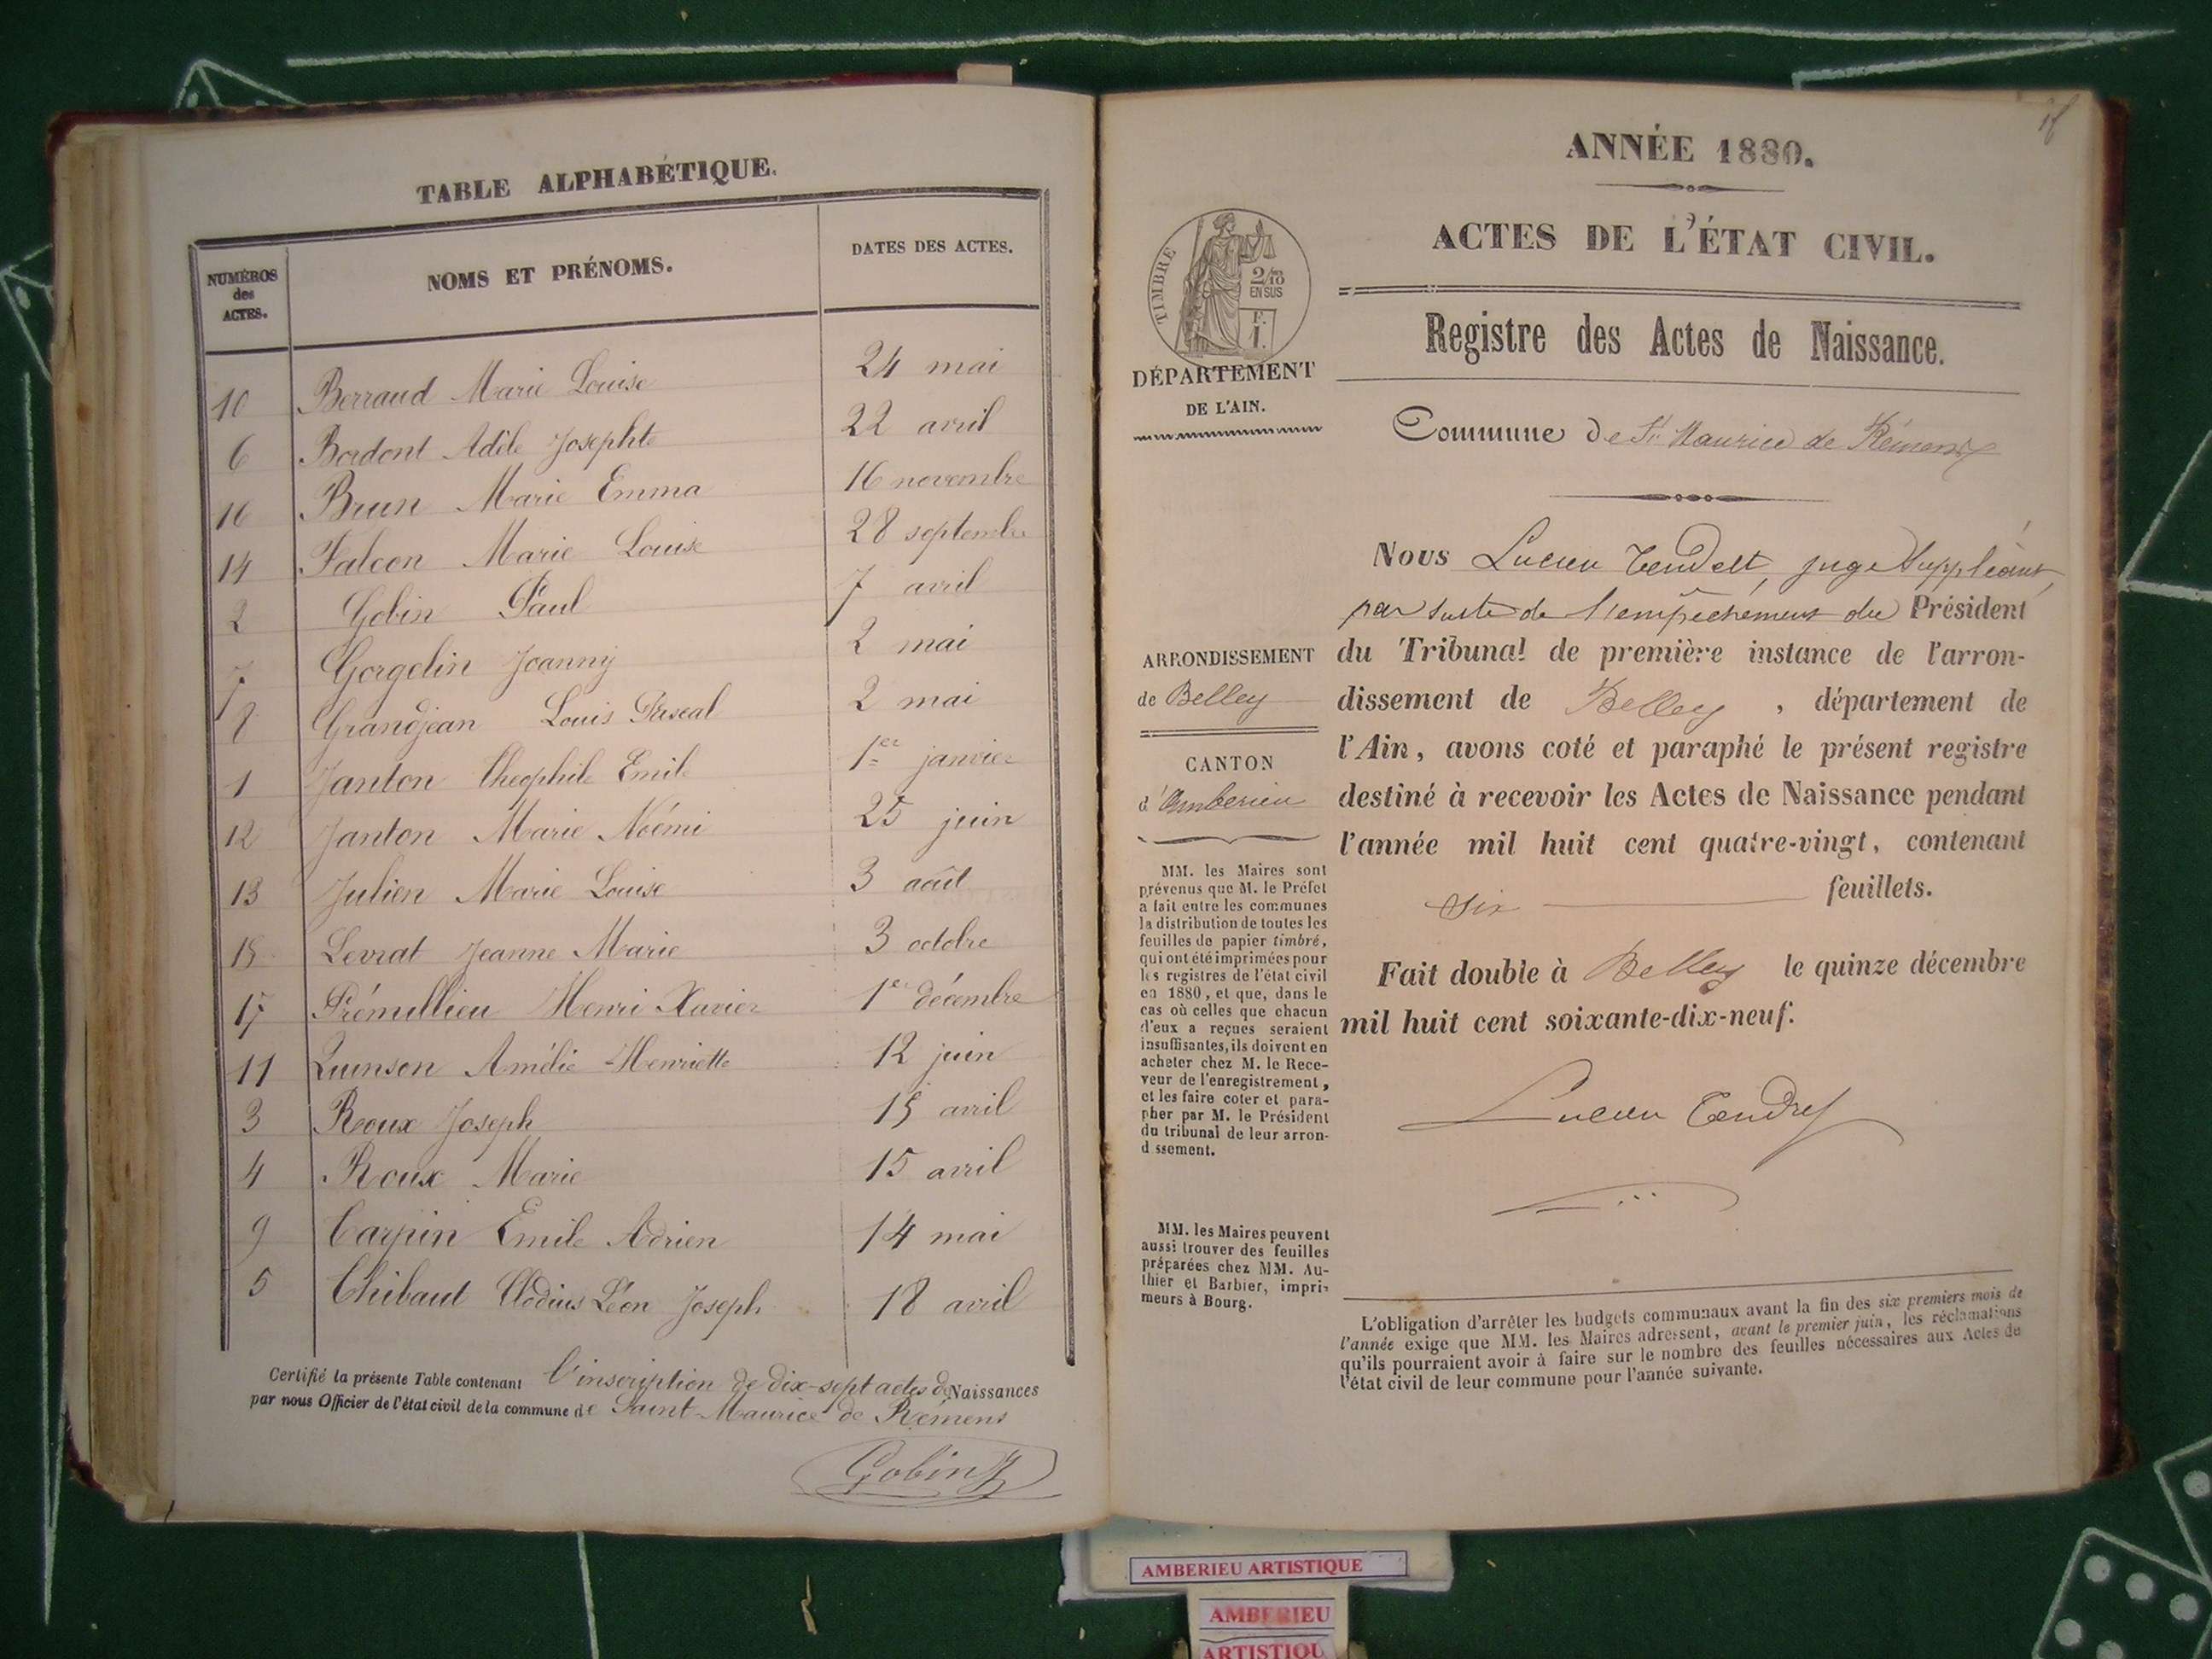 TABLE ALPHABÉTIQUE.
NUMÉROS des ACTES.
NOMS ET PRÉNOMS.
DATES DES ACTES.
10 Berraud Marie Louise 24 mai
6 Bordont Adèle Josephte 22 avril
16 Brun Marie Emma 16 novembre
14 Falcon Marie Louise 28 septembre
2 Gobin Paul 7 avril
7 Gorgelin Joanny 2 mai
8 Grandjean Louis Pascal 2 mai
1 Janton Théophile Emile 1er janvier
12 Janton Marie Noémi 25 juin
13 Julien Marie Louise 3 août
15 Levrat Jeanne Marie 3 octobre
17 Prémillieu Henri Xavier 1er décembre
11 Quinson Amélie Henriette 12 juin
3 Roux Joseph 15 avril
4 Roux Marie 15 avril
9 Tarpin Emile Adrien 14 mai
5 Thibaut Clodius Léon Joseph 18 avril
Certifié la présente Table contenant l'inscription de dix-sept actes de Naissances
par nous Officier de l'état civil de la commune de Saint-Maurice de Rémens
Gobin
ANNÉE 1880.
ACTES DE L'ÉTAT CIVIL.
Registre des Actes de Naissance.
TIMBRE
2/10
EN SUS
F.
1.
DÉPARTEMENT
DE L'AIN.
Commune de St Maurice de Rémens
Nous Lucien Tendret, juge Suppléant,
par suite de l'empêchement du Président
du Tribunal de première instance de l'arron-
dissement de Belley, département de
l'Ain, avons coté et paraphé le présent registre
destiné à recevoir les Actes de Naissance pendant
l'année mil huit cent quatre-vingt, contenant
six feuillets.
Fait double à Belley le quinze décembre
mil huit cent soixante-dix-neuf.
Lucien Tendret
ARRONDISSEMENT
de Belley
CANTON
d'Amberieu
MM. les Maires sont
prévenus que M. le Préfet
a fait entre les communes
la distribution de toutes les
feuilles de papier timbré,
qui ont été imprimées pour
les registres de l'état civil
en 1880, et que, dans le
cas où celles que chacun
d'eux a reçues seraient
insuffisantes, ils doivent en
acheter chez M. le Rece-
veur de l'enregistrement,
et les faire coter et para-
pher par M. le Président
du tribunal de leur arron-
d ssement.
MM. les Maires peuvent
aussi trouver des feuilles
préparées chez MM. Au-
thier et Barbier, impri-
meurs à Bourg.
L'obligation d'arrêter les budgets communaux avant la fin des six premiers mois de
l'année exige que MM. les Maires adressent, avant le premier juin, les réclamations
qu'ils pourraient avoir à faire sur le nombre des feuilles nécessaires aux Actes de
l'état civil de leur commune pour l'année suivante.
AMBERIEU ARTISTIQUE
AMBERIEU
ARTISTIQU